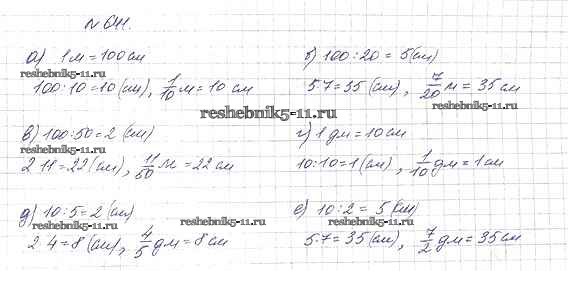 № 641.
а) 1 м = 100 см
100:10=10 (см), 1/10 м = 10 см
б) 100:20 = 5 (см)
5·7=35 (см), 7/20 м = 35 см
в) 100:50=2 (см)
2·11=22 (см), 11/50 м = 22 см
г) 1 дм = 10 см
10:10=1 (см), 1/10 дм = 1 см
д) 10:5=2 (см)
2·4=8 (см), 4/5 дм = 8 см
е) 10:2 = 5 (см)
5·7=35 (см), 7/2 дм = 35 см
reshebnik5-11.ru
reshebnik5-11.ru
reshebnik5-11.ru
reshebnik5-11.ru
reshebnik5-11.ru
reshebnik5-11.ru
reshebnik5-11.ru
reshebnik5-11.ru